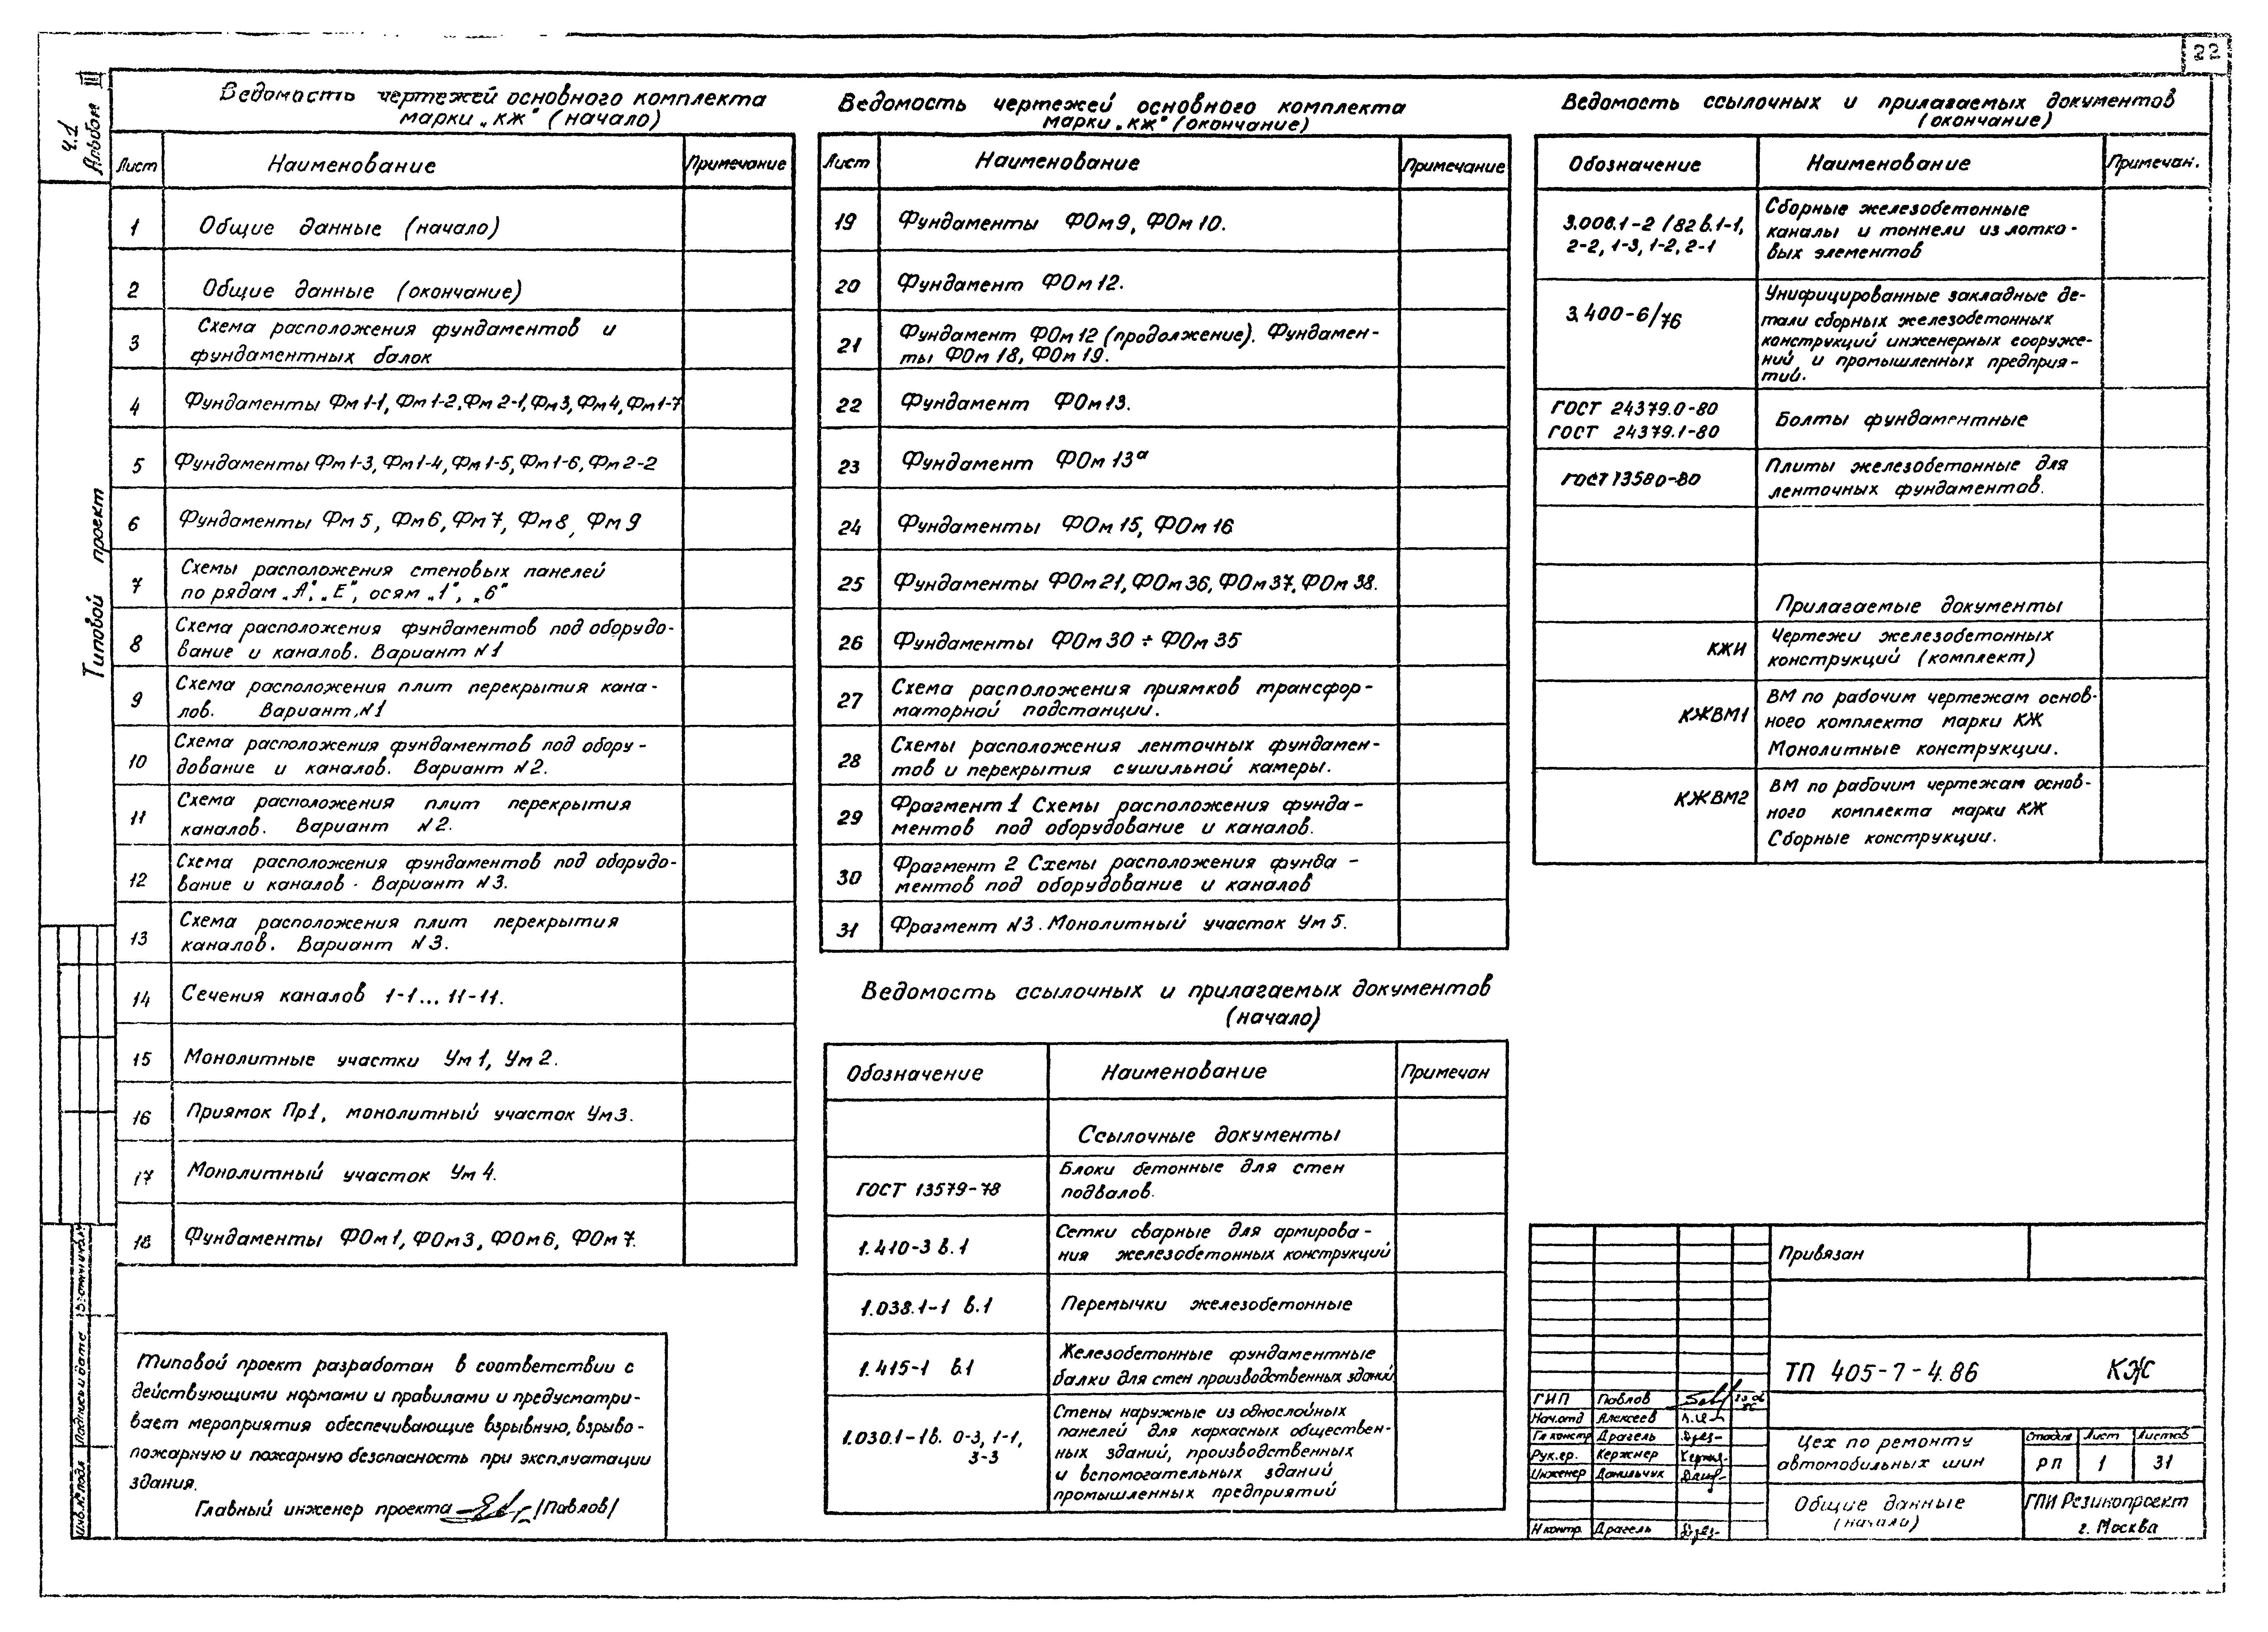 22
Ч.1
Альбом III
Типовой проект
Ведомость чертежей основного комплекта
марки „КЖ" (начало)
Лист Наименование Примечание
1 Общие данные (начало)
2 Общие данные (окончание)
3 Схема расположения фундаментов и
фундаментных балок
4 Фундаменты Фм 1-1, Фм 1-2, Фм 2-1, Фм3, Фм4, Фм1-7
5 Фундаменты Фм 1-3, Фм 1-4, Фм 1-5, Фм 1-6, Фм 2-2
6 Фундаменты Фм 5, Фм 6, Фм 7, Фм 8, Фм 9
7 Схемы расположения стеновых панелей
по рядам „А", „Е", осям „1", „6"
8 Схема расположения фундаментов под оборудо-
вание и каналов. Вариант №1
9 Схема расположения плит перекрытия кана-
лов. Вариант №1
10 Схема расположения фундаментов под обору-
дование и каналов. Вариант №2.
11 Схема расположения плит перекрытия
каналов. Вариант №2.
12 Схема расположения фундаментов под оборудо-
вание и каналов. Вариант №3.
13 Схема расположения плит перекрытия
каналов. Вариант №3.
14 Сечения каналов 1-1... 11-11.
15 Монолитные участки Ум 1, Ум 2.
16 Приямок Пр1, монолитный участок Ум3.
17 Монолитный участок Ум 4.
18 Фундаменты ФОм 1, ФОм 3, ФОм 6, ФОм 7.
Типовой проект разработан в соответствии с
действующими нормами и правилами и предусматри-
вает мероприятия обеспечивающие взрывную, взрыво-
пожарную и пожарную безопасность при эксплуатации
здания.
Главный инженер проекта /Павлов/
Ведомость чертежей основного комплекта
марки „КЖ" (окончание)
Лист Наименование Примечание
19 Фундаменты ФОм 9, ФОм 10.
20 Фундамент ФОм 12.
21 Фундамент ФОм 12 (продолжение). Фундамен-
ты ФОм 18, ФОм 19.
22 Фундамент ФОм 13.
23 Фундамент ФОм 13а
24 Фундаменты ФОм 15, ФОм 16
25 Фундаменты ФОм 21, ФОм 36, ФОм 37, ФОм 38.
26 Фундаменты ФОм 30 ÷ ФОм 35
27 Схема расположения приямков трансфор-
маторной подстанции.
28 Схемы расположения ленточных фундамен-
тов и перекрытия сушильной камеры.
29 Фрагмент 1 Схемы расположения фунда-
ментов под оборудование и каналов.
30 Фрагмент 2 Схемы расположения фунда-
ментов под оборудование и каналов
31 Фрагмент №3. Монолитный участок Ум 5.
Ведомость ссылочных и прилагаемых документов
(начало)
Обозначение Наименование Примечан
Ссылочные документы
ГОСТ 13579-78 Блоки бетонные для стен
подвалов.
1.410-3 в.1 Сетки сварные для армирова-
ния железобетонных конструкций
1.038.1-1 в.1 Перемычки железобетонные
1.415-1 в.1 Железобетонные фундаментные
балки для стен производственных зданий
1.030.1-1в. 0-3, 1-1,
3-3
Стены наружные из однослойных
панелей для каркасных обществен-
ных зданий, производственных
и вспомогательных зданий
промышленных предприятий
Ведомость ссылочных и прилагаемых документов
(окончание)
Обозначение Наименование Примечан.
3.006.1-2/82 в.1-1,
2-2, 1-3, 1-2, 2-1
Сборные железобетонные
каналы и тоннели из лотко-
вых элементов
3.400-6/76
Унифицированные закладные де-
тали сборных железобетонных
конструкций инженерных сооруже-
ний и промышленных предприя-
тий.
ГОСТ 24379.0-80
ГОСТ 24379.1-80
Болты фундаментные
ГОСТ 13580-80 Плиты железобетонные для
ленточных фундаментов.
Прилагаемые документы
КЖИ Чертежи железобетонных
конструкций (комплект)
КЖВМ1 ВМ по рабочим чертежам основ-
ного комплекта марки КЖ
Монолитные конструкции.
КЖВМ2 ВМ по рабочим чертежам основ-
ного комплекта марки КЖ
Сборные конструкции.
Привязан
ТП 405-7-4.86 КЖ
ГИП Павлов
Нач.отд Алексеев
Гл констр Драгель
Рук.гр. Кержнер
Инженер Данильчук
Н контр. Драгель
Цех по ремонту
автомобильных шин
Стадия Лист Листов
РП 1 31
Общие данные
(начало)
ГПИ Резинопроект
г. Москва
Инв.№ подл Подпись и дата